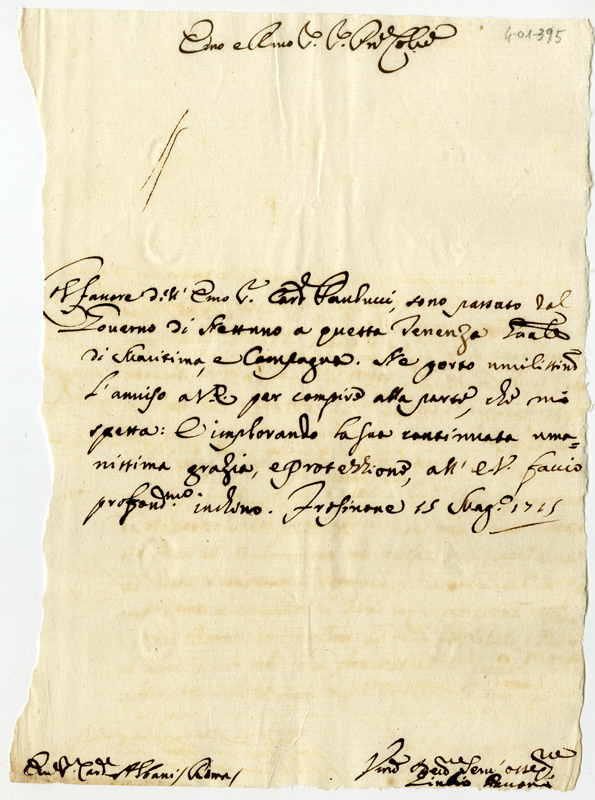 Emo e Rmo Sr. Sr. Pne Colmo
401-395
Il favore dell' Emo Sr. Card Paulucci, sono passato dal
Governo di Nettuno a questa Tenenza Gnale
di Marittima, e Campagna. Ne porto umilissimo
l'avviso a V.E. per compire alla parte, che mi
spetta: E implorando la sua continuata uma=
nissima grazia, e Protezzione, all' E.V. faccio
profondmo inchino. Frosinone 15 Mago 1715
Em Sr. Card Albani / Roma /
Umo Devmo Servre